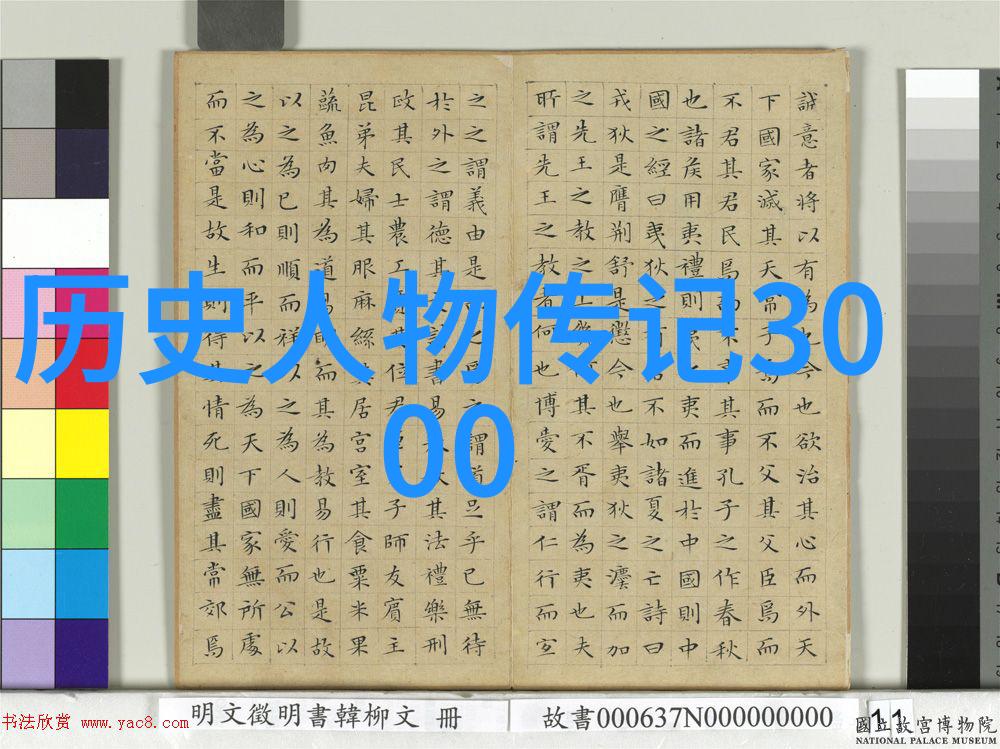 历史人物传记30
00
誠意者將以有為也今也欲治其心而外天
下國家滅其天常子焉而不父其父臣焉而
不君其君民焉而不事其事孔子之作春秋
也諸侯用夷禮則夷之夷而進於中國則中
國之經曰夷狄之有君不如諸夏之亡詩曰
戎狄是膺荊舒是懲今也舉夷狄之灋而加
之先王之教之上幾何其不胥而為夷也夫
所謂先王之教者何也博愛之謂仁行而宜
之之謂義由是之焉之謂道足乎已無待
於外之謂德其詩書易其法禮樂刑
政其民士農工其位君子師友賓主
昆弟夫婦其服麻絲其居宮室其食粟米果
蔬魚肉其為道易明而其為教易行也是故
以之為已則順而祥以之為人則愛而公以
之為心則和而平以之為天下國家無所處
而不當是故生則得其情死則盡其常郊焉
明文徵明書韓柳文 冊
故書000637N000000000
11
书法欣赏 www.yac8.com
國立故宮博物院
NATIONAL PALACE MUSEUM